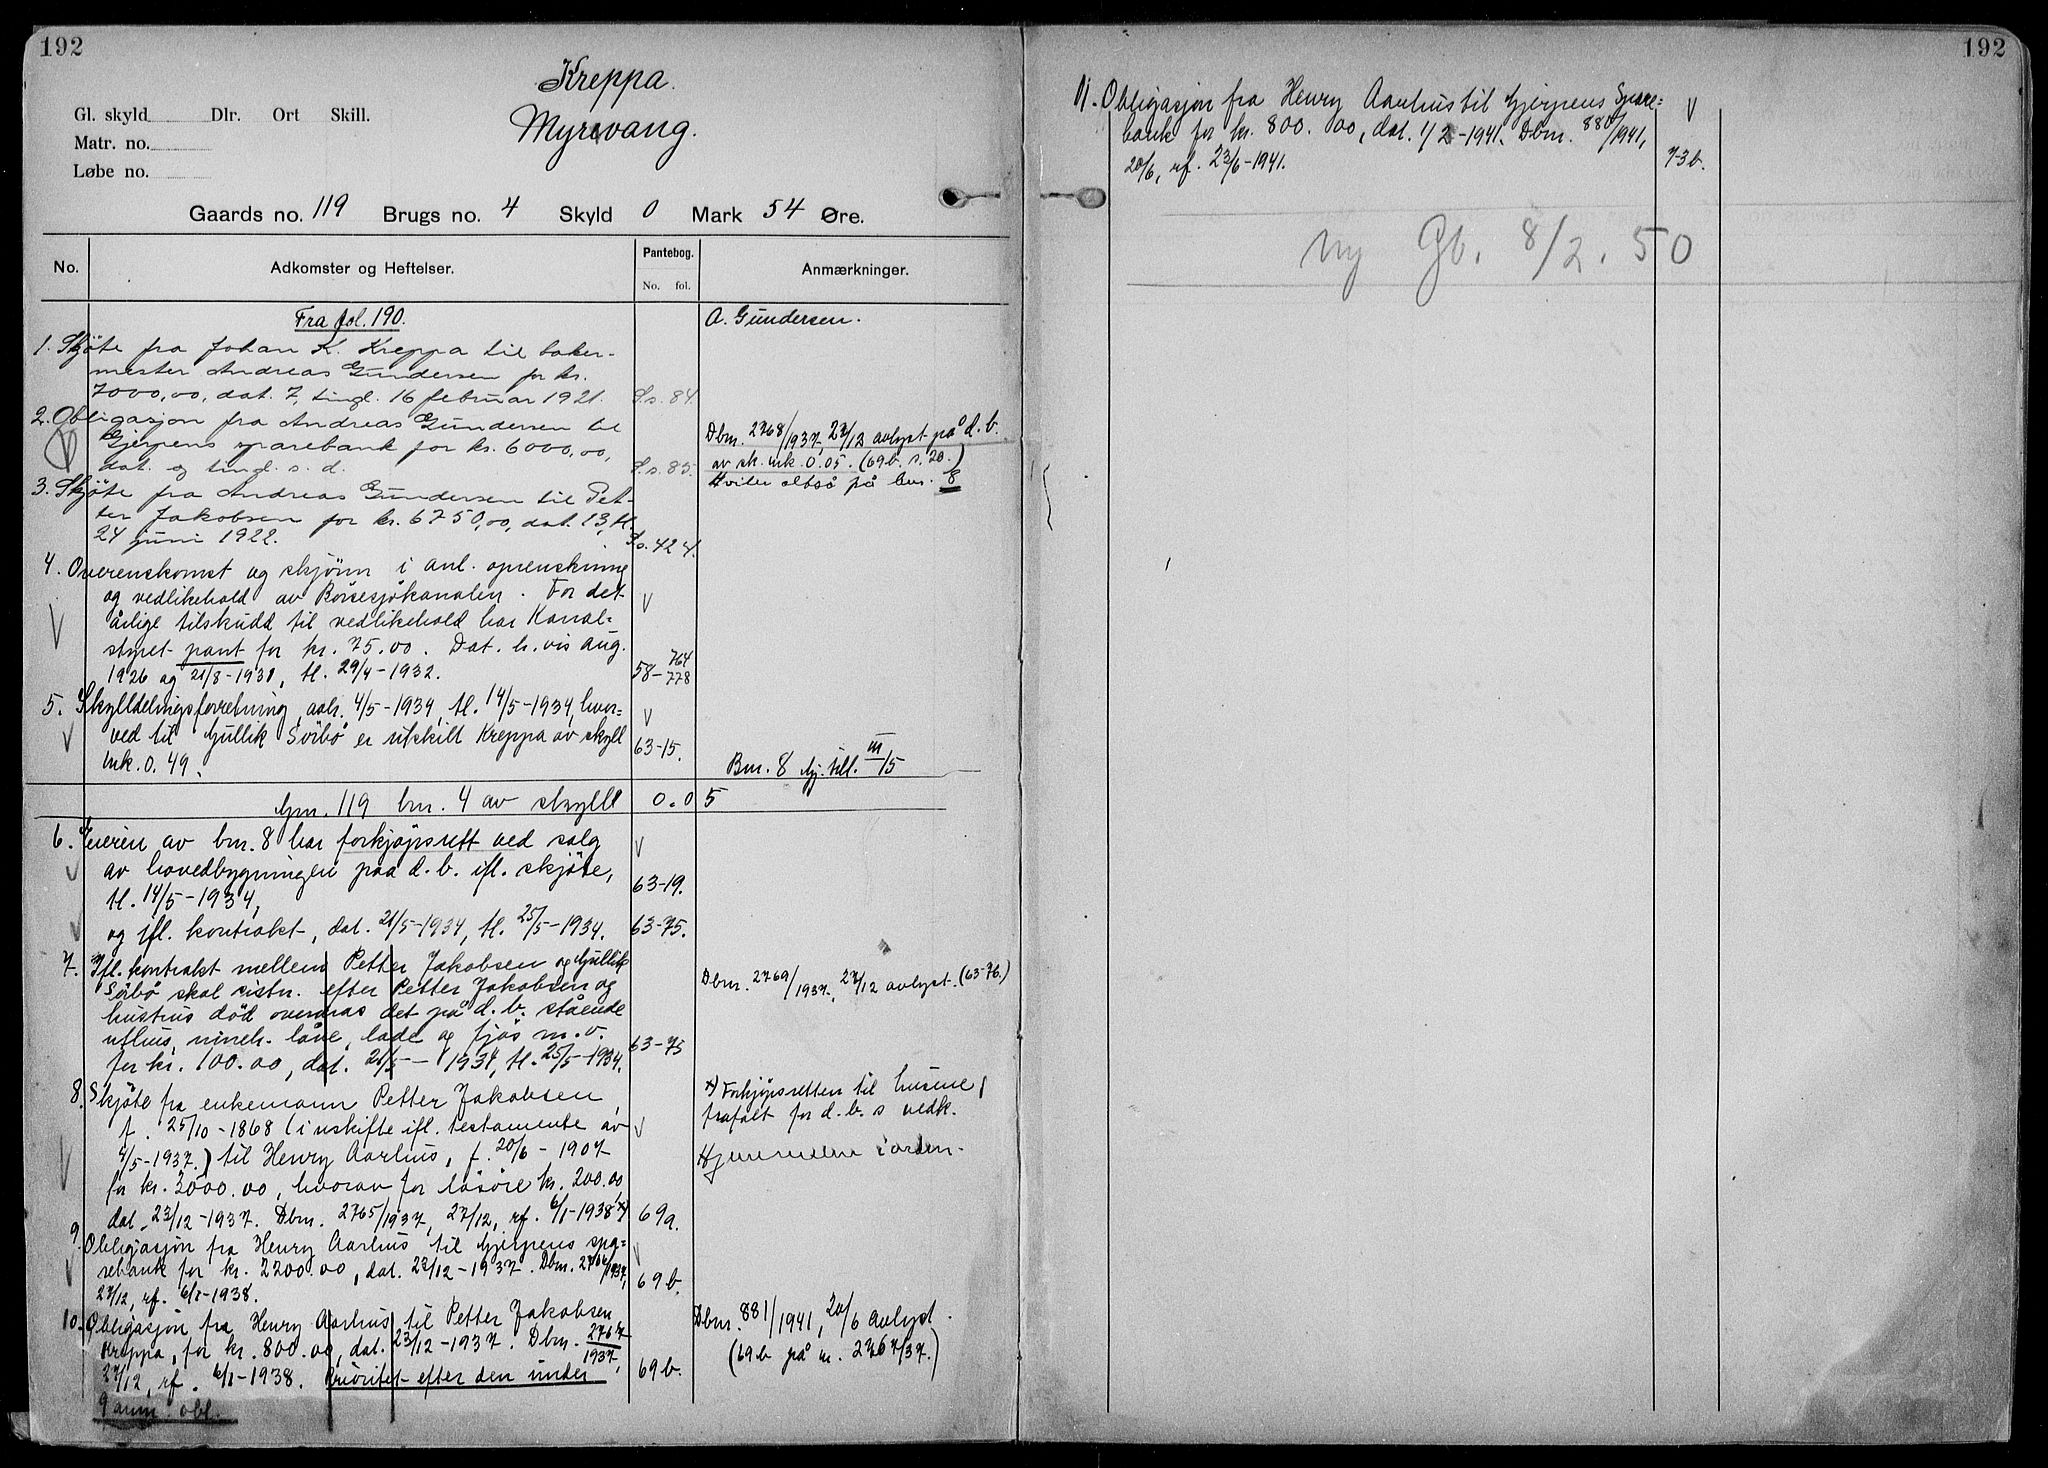 192
Kreppa.
Myrvang.
Gl. skyld Dlr. Ort Skill.
Matr. no.
Løbe no.
Gaards no. 119 Brugs no. 4 Skyld 0 Mark 54 Øre.
No. Adkomster og Heftelser. Pantebog. No. fol. Anmærkninger.
Fra fol. 190.
A. Gundersen.
1. Skjøte fra Johan K. Kreppa til baker-
mester Andreas Gundersen for kr.
7000,00, dat. 7, tingl. 16 februar 1921. S.s. 84.
2. Obligasjon fra Andreas Gundersen til
Gjerpens sparebank for kr. 6000,00,
dat. og tingl. s. d. S.s. 85.
Dbnr. 2768/1937, 27/12 avlyst på d. b.
av sk. mk. 0.05. (69b. s. 20.)
Hviler altså på bnr. 8
3. Skjøte fra Andreas Gundersen til Pet-
ter Jakobsen for kr. 6750,00, dat. 13, tl.
24 juni 1922. S.s. 424.
4. Overenskomst og skjønn i anl. oprenskning
og vedlikehold av Børsesjøkanalen. For det
årlige tilskudd til vedlikehold har Kanal-
styret pant for kr. 75.00. Dat. h. vis aug.
1926 og 21/8-1931, tl. 29/4-1932. 58-764
778
5. Skylddelingsforretning, avh. 4/5-1934, tl. 14/5-1934, hvor-
ved til Gullik Sørbø er utskilt Kreppa av skyld
mk. 0.49. 63-15.
Bnr. 8 Gj. till. III/15
Gnr. 119 bnr. 4 av skyld 0.05
6. Eieren av bnr. 8 har forkjøpsrett ved salg
av hovedbygningen paa d. b. ifl. skjøte,
tl. 14/5-1934, 63-19.
og ifl. kontrakt, dat. 21/5-1934, tl. 25/5-1934. 63-75.
7. Ifl. kontrakt mellem Petter Jakobsen og Gullik
Sørbø skal sistn. efter Petter Jakobsen og
hustrus død overdras det på d. b. stående
uthus, nineh. låve, lade og fjøs m.v.
for kr. 100.00, dat. 21/5-1934, tl. 25/5-1934. 63-75
Dbnr. 2769/1937, 27/12 avlyst. (63-76.)
8. Skjøte fra enkemann Petter Jakobsen,
f. 25/10-1868 (i uskifte ifl. testamente av
4/5-1937.) til Henry Aarhus, f. 20/6-1907
for kr. 3000.00, hvorav for løsøre kr. 200.00,
dat. 23/12-1937. Dbnr. 2765/1937, 27/12, rf. 6/1-1938 x) 69a.
x) Forkjøpsretten til husene
frafalt for d. b. s vedk.
Hjemmelen i orden.
9. Obligasjon fra Henry Aarhus til Gjerpens spa-
rebank for kr. 2200.00, dat. 23/12-1937. Dbnr. 2766/1937,
27/12, rf. 6/1-1938. 69b.
10. Obligasjon fra Henry Aarhus til Petter Jakobsen
Kreppa, for kr. 800.00, dat. 23/12-1937. Dbnr. 2767/1937,
27/12, rf. 6/1-1938. Prioritet efter den under 69b.
9 anm. obl.
Dbnr. 881/1941, 20/6 avlyst.
(69b på nr. 2767/37.)
192
11. Obligasjon fra Henry Aarhus til Gjerpens Spare-
bank for kr. 800.00, dat. 1/2-1941. Dbnr. 880/1941,
20/6, rf. 23/6-1941. 73b.
ny Gb. 8/2. 50